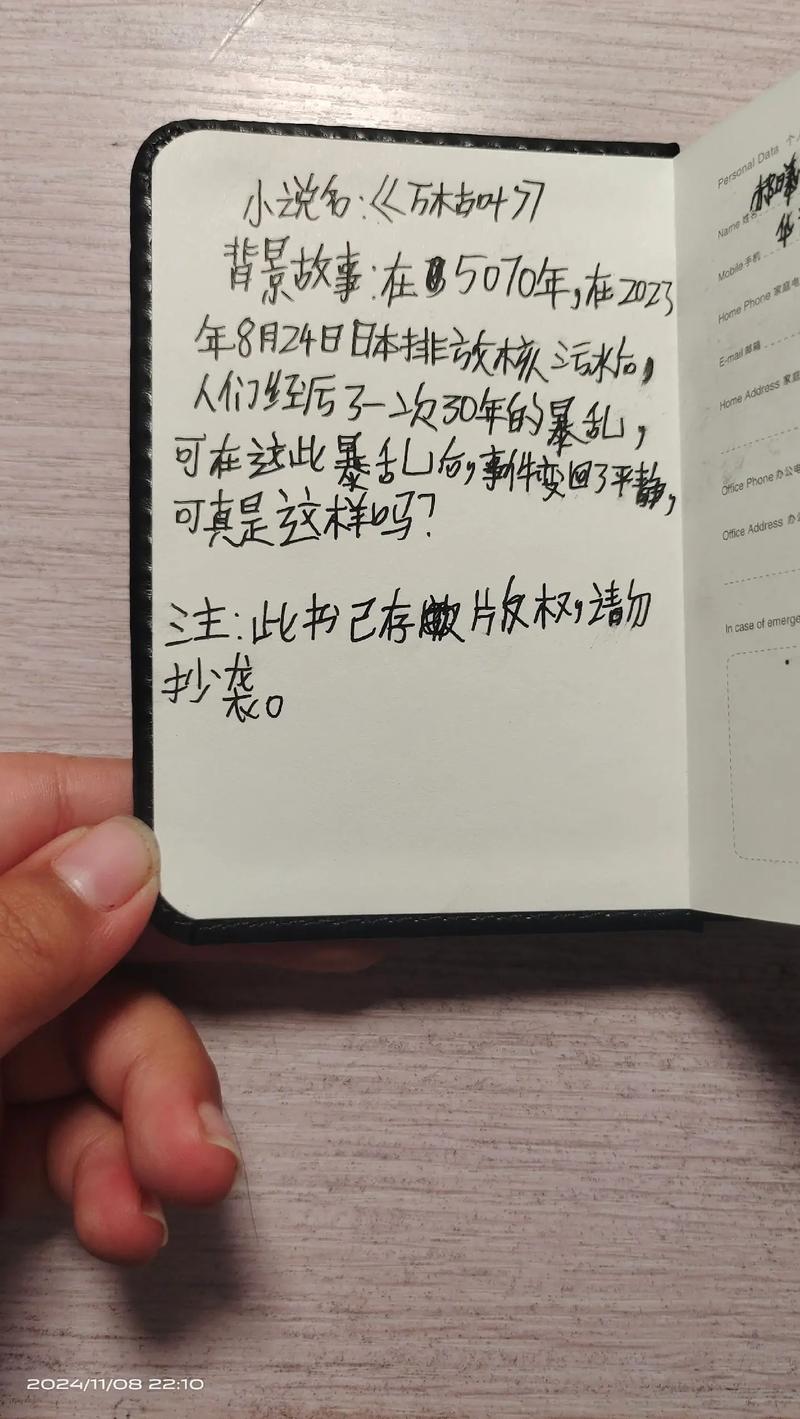 小说名:《万木古叶》
背景故事:在5070年,在2023
年8月24日日本排放核污水后,
人们经历了一次30年的暴乱,
可在这此暴乱后,事件变回了平静,
可真是这样吗?
注:此书已存版权,请勿
抄袭。
Personal Data 个
Name 姓名
Mobile 手机
Home Phone 家庭电
E-mail 邮箱
Home Address 家庭
Office Phone 办公电
Office Address 办公
In case of emerge
2024/11/08 22:10